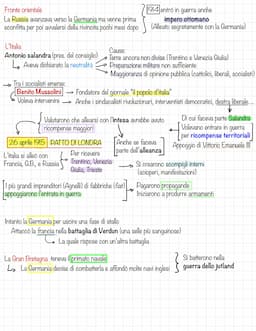 Fronte orientale
La Russia avanzava verso la Germania ma venne prima
sconfitta per poi avvalersi della rivincita pochi mesi dopo
1914 entrò in guerra anche
impero ottomano
(Alleato segretamente con la Germania)
L'Italia
Antonio salandra (pres. del consiglio)
Aveva dichiarato la neutralità
Cause:
Terre ancora non divise (Trentino e Venezia Giulia)
Preparazione militare non sufficiente
Maggioranza di opinione pubblica (cattolici, liberali, socialisti)
Tra i socialisti emerse:
Benito Mussolini
Fondatore del giornale "il popolo d'italia"
Voleva intervenire
Anche i sindacalisti rivoluzionari, interventisti democratici, destra liberale...
Valutarono che allearsi con l'intesa avrebbe avuto
ricompense maggiori
Di cui faceva parte Salandra
Volevano entrare in guerra
per ricompense territoriali
Appoggio di Vittorio Emanuele III
26 aprile 1915 PATTO DI LONDRA
Anche se faceva
parte dell'alleanza
L'italia si alleò con
Francia, G.B., e Russia
Per riavere
Trentino, Venezia
Giulia, Trieste
Si innescano scompigli interni
(scioperi, manifestazioni)
I più grandi imprenditori (Agnelli) di fabbriche (fiat)
appoggiarono l'entrata in guerra
Pagarono propagande
Iniziarono a produrre armamenti
Intanto la Germania per uscire una fase di stallo
Attaccò la francia nella battaglia di Verdun (una delle più sanguinose)
La quale rispose con un'altra battaglia.
La Gran Bretagna teneva il primato navale
La Germania decise di combatterla e affondò molte navi inglesi
Si batterono nella
guerra dello jutland